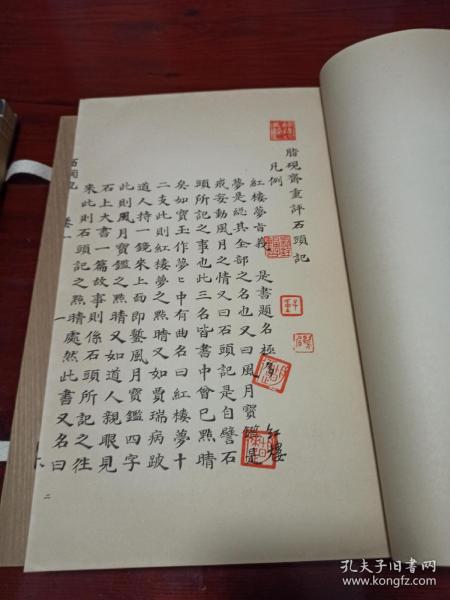 脂硯齋重評石頭記
凡例
紅樓夢旨義 是書題名極多 紅樓
夢是總其全部之名也又曰風月寶鑑是
戒妄動風月之情又曰石頭記是自譬石
頭所記之事也此三名皆書中曾已點睛
矣如寶玉作夢〻中有曲名曰紅樓夢十
二支此則紅樓夢之點睛又如賈瑞病跛
道人持一鏡來上面即鏨風月寶鑑四字
此則風月寶鑑之點睛又如道人親眼見
石上大書一篇故事則係石頭所記之往
來此則石頭記之點睛處然此書又名曰
石頭記 卷一
一
二
孔夫子旧书网
www.kongfz.com